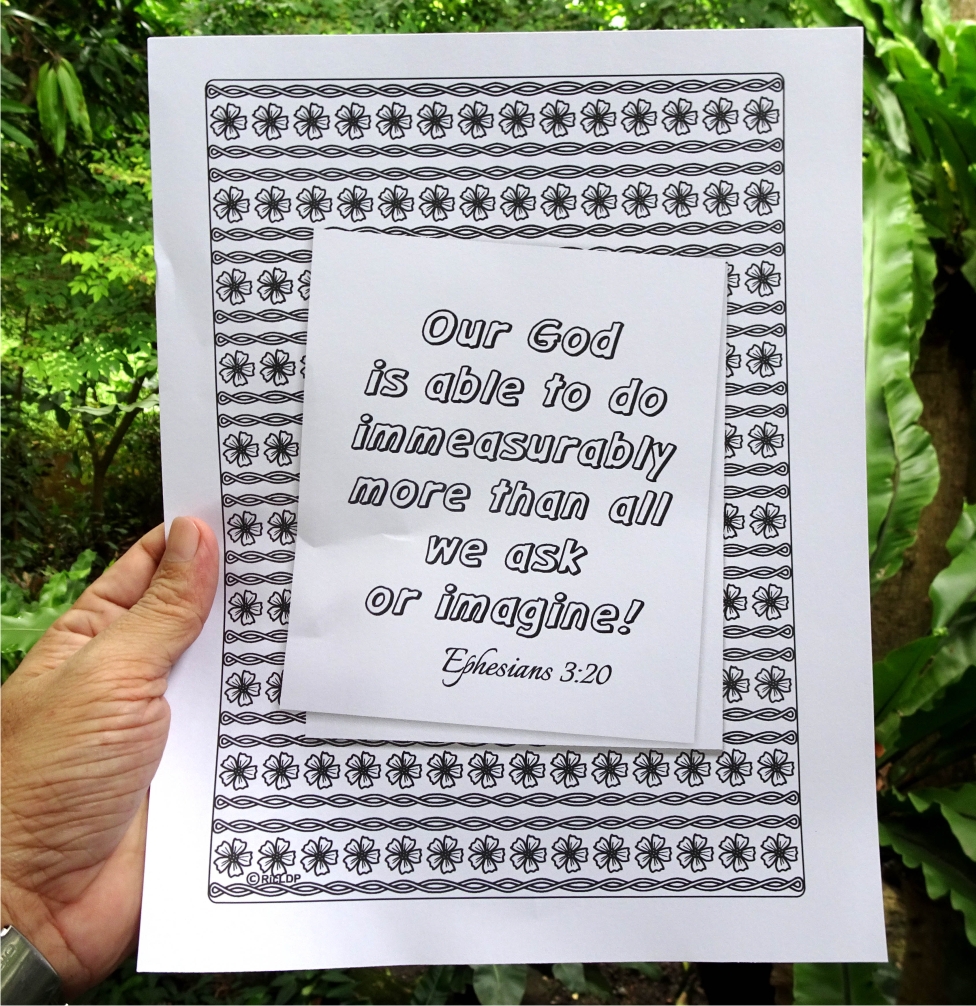 Our God
is able to do
immeasurably
more than all
we ask
or imagine!
Ephesians 3:20